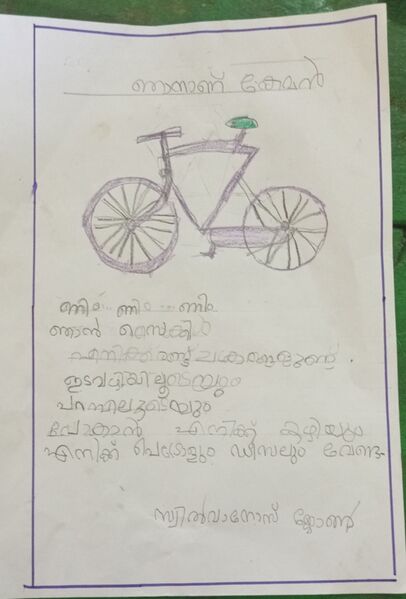 ഞാനാണ് കേമൻ
ണിം ണിം ണിം
ഞാൻ സൈക്കിൾ
എനിക്ക് രണ്ട് ചക്രങ്ങളുണ്ട്.
ഇടവഴിയിലൂടെയും
പറമ്പിലൂടെയും
പോകാൻ എനിക്ക് കഴിയും
എനിക്ക് പെട്രോളും ഡീസലും വേണ്ട
സ്വിൽവാനോസ് ജോൺ